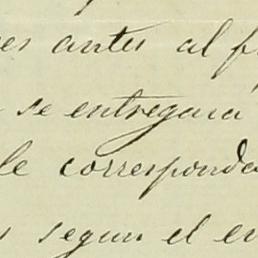 es antes al f
se entregará
le corresponda
s segun el en